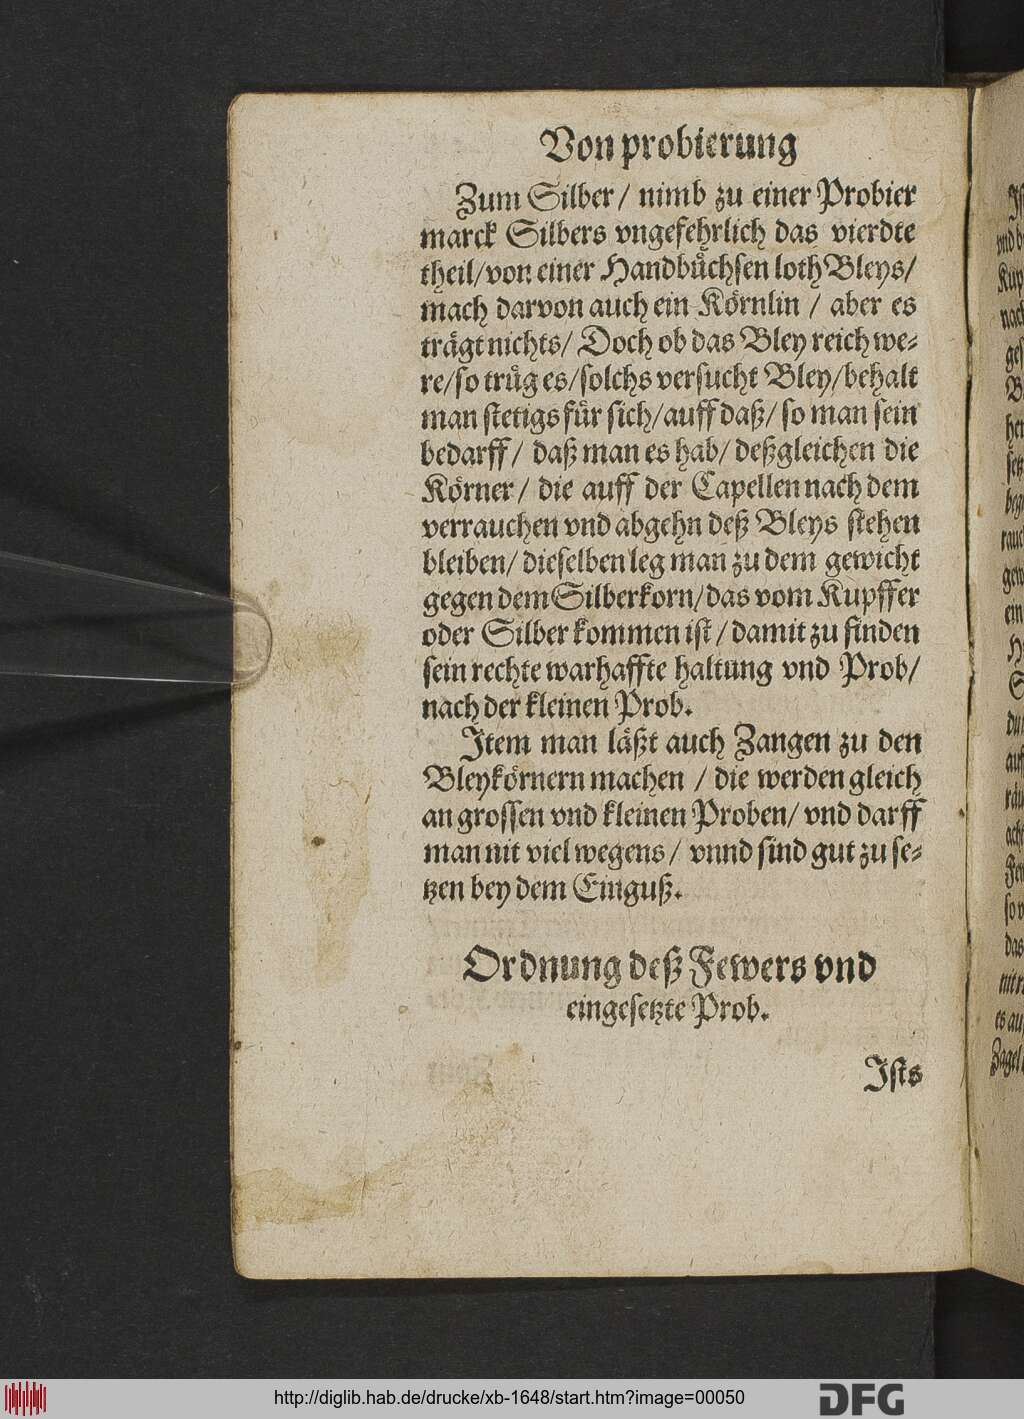 Von probierung
Zum Silber / nimb zu einer Probier
marck Silbers vngefehrlich das vierdte
theil/von einer Handbüchsen loth Bleys/
mach darvon auch ein Körnlin / aber es
trägt nichts/ Doch ob das Bley reich we-
re/so trüg es/solchs versucht Bley/behalt
man stetigs für sich/auff daß/ so man sein
bedarff / daß man es hab/ deßgleichen die
Körner / die auff der Capellen nach dem
verrauchen vnd abgehn deß Bleys stehen
bleiben/ dieselben leg man zu dem gewicht
gegen dem Silberkorn/das vom Kupffer
oder Silber kommen ist / damit zu finden
sein rechte warhaffte haltung vnd Prob/
nach der kleinen Prob.
Item man läßt auch Zangen zu den
Bleykörnern machen / die werden gleich
an grossen vnd kleinen Proben/ vnd darff
man nit viel wegens / vnnd sind gut zu se-
tzen bey dem Einguß.
Ordnung deß Fewers vnd
eingesetzte Prob.
Ists
http://diglib.hab.de/drucke/xb-1648/start.htm?image=00050
DFG